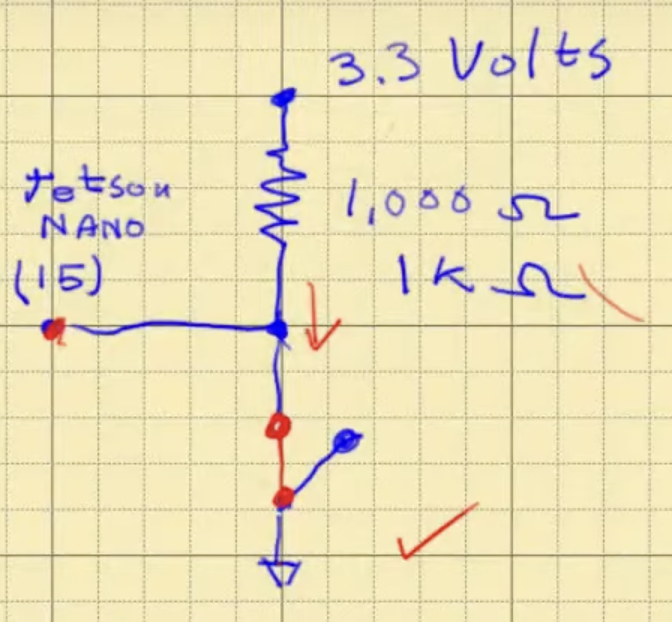 3.3 Volts
Jetson
NANO
(15)
1,000 Ω
1K Ω